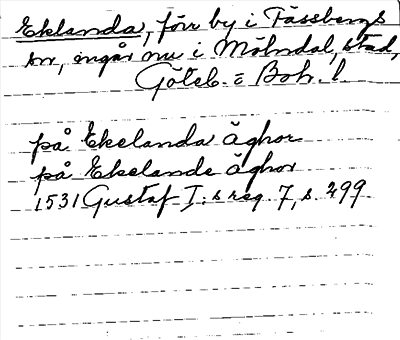 Eklanda, förr by i Fässbergs
sn, ingår nu i Mölndal, stad,
Göteb. o Boh. l.
på Ekelanda äghor
på Ekelande äghor
1531 Gustaf I:s reg. 7, s. 299